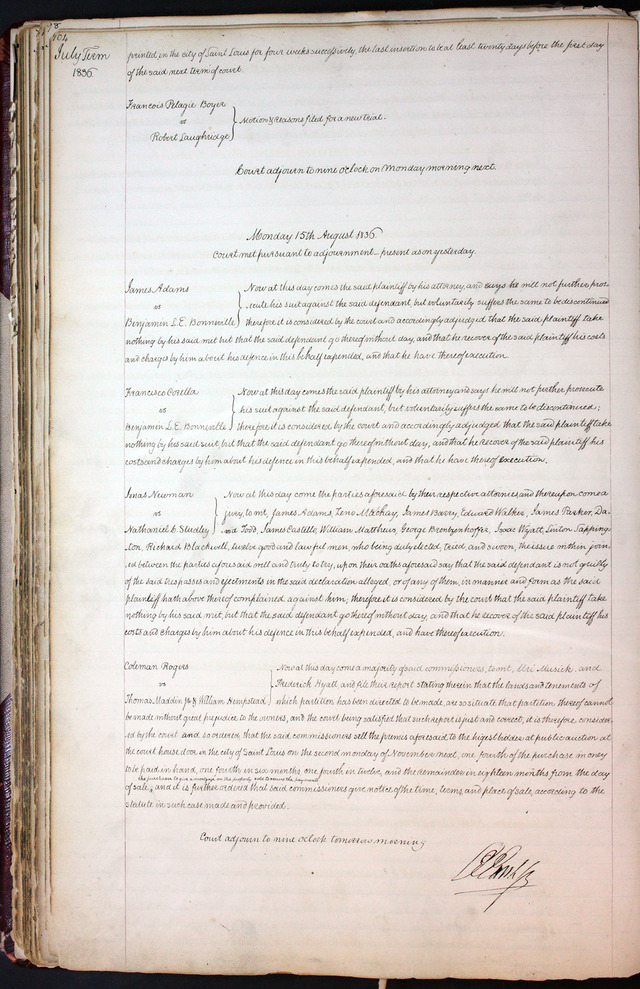 104
July Term
1836
printed in the city of Saint Louis for four weeks successively, the last insertion to be at least twenty days before the first day
of the said next term of court.
Francois Pelagie Boyer
vs
Robert Laughridge
Motion & reasons filed for a new trial.
Court adjourn to nine oclock on Monday morning next.
Monday 15th August 1836
Court met pursuant to adjournment – present as on yesterday.
James Adams
vs
Benjamin L.E. Bonneville
Now at this day comes the said plaintiff by his attorney, and says he will not further pros-
ecute his suit against the said defendant, but voluntarily suffers the same to be discontinued
therefore it is considered by the court and accordingly adjudged that the said plaintiff take
nothing by his said writ but that the said defendant go thereof without day, and that he recover of the said plaintiff his costs
and charges by him about his defence in this behalf expended, and that he have thereof execution.
Francisco Corella
vs
Benjamin L.E. Bonneville
Now at this day comes the said plaintiff by his attorney and says he will not further prosecute
his suit against the said defendant, but voluntarily suffers the same to be discontinued;
therefore it is considered by the court and accordingly adjudged that the said plaintiff take
nothing by his said suit, but that the said defendant go thereof without day, and that he recover of the said plaintiff his
costs and charges by him about his defence in this behalf expended, and that he have thereof execution.
Jonas Newman
vs
Nathaniel C. Studley
Now at this day come the parties aforesaid by their respective attornies and thereupon come a
jury to wit, James Adams, Zeno Mackay, James Barry, Edward Walker, James Parker, Da-
vid Todd, James Castello, William Matthews, George Isaac Wyatt, Linton Sapping-
ton, Richard Blackwell, twelve good and lawful men, who being duly elected, tried, and sworn, the issue within join-
ed between the parties aforesaid well and truly to try, upon their oaths aforesaid say that the said defendant is not guilty
of the said trespasses and ejectments in the said declaration alleged, or of any of them, in manner and form as the said
plaintiff hath above thereof complained against him; therefore it is considered by the court that the said plaintiff take
nothing by his said writ, but that the said defendant go thereof without day, and that he recover of the said plaintiff his
costs and charges by him about his defence in this behalf expended, and have thereof execution.
Coleman Rogers
vs
Thomas Maddin Jr & William Hempstead
Now at this day come a majority of said commissioners, to wit, Uri Musick, and
Frederick Hyatt, and file their report stating therein that the lands and tenements of
which partition has been directed to be made, are so situate that partition thereof cannot
be made without great prejudice to the owners, and the court being satisfied that such report is just and correct, it is therefore, consider-
ed by the court and so ordered that the said commissioners sell the premises aforesaid to the higest bidder at public auction at
the court house door in the city of Saint Louis on the second monday of November next, one fourth of the purchase money
to be paid in hand, one fourth in six months, one fourth in twelve, and the remainder in eighteen months from the day
the purchaser to give a mortgage on the property sold to secure the payment
of sale, and it is further ordered that said commissioners give notice of the time, terms, and place of sale, according to the
statute in such case made and provided.
Court adjourn to nine oclock tomorrow morning